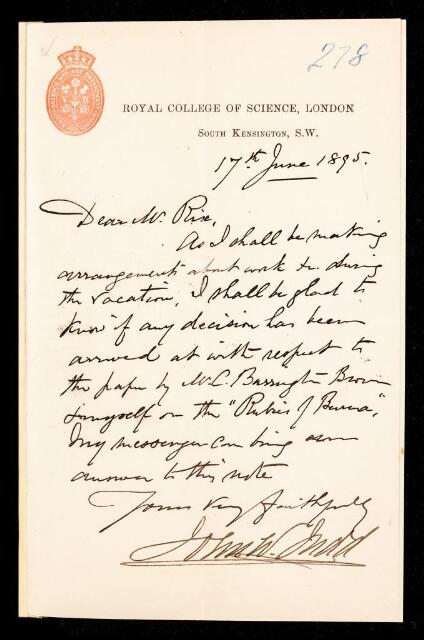 278
ROYAL COLLEGE OF SCIENCE, LONDON
SOUTH KENSINGTON, S.W.
17th June 1895.
Dear Mr. Rix,
As I shall be making
arrangements about work &c. during
the vacation, I shall be glad to
know if any decision has been
arrived at with respect to
the paper by Mr. C. Barrington Brown
& myself on the "Rubies of Burma",
My messenger can bring an
answer to this note
Yours very faithfully
John W. Judd